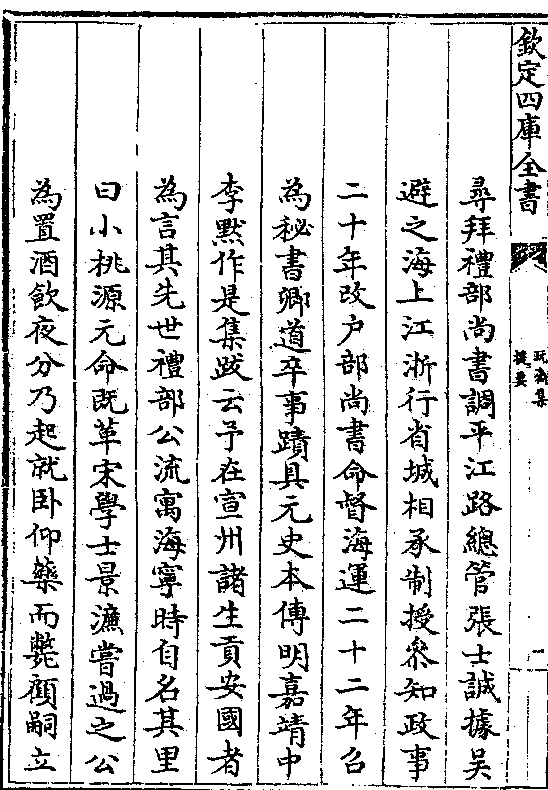 欽定四庫全書
玩齋集
提要
尋拜禮部尚書調平江路總管張士誠據吳
避之海上江浙行省城相承制授叅知政事
二十年改户部尚書命督海運二十二年召
為秘書卿道卒事蹟具元史本傳明嘉靖中
李黙作是集跋云予在宣州諸生貢安國者
為言其先世禮部公流寓海寧時自名其里
曰小桃源元命既革宋學士景濂嘗過之公
為置酒飲夜分乃起就卧仰藥而斃顧嗣立